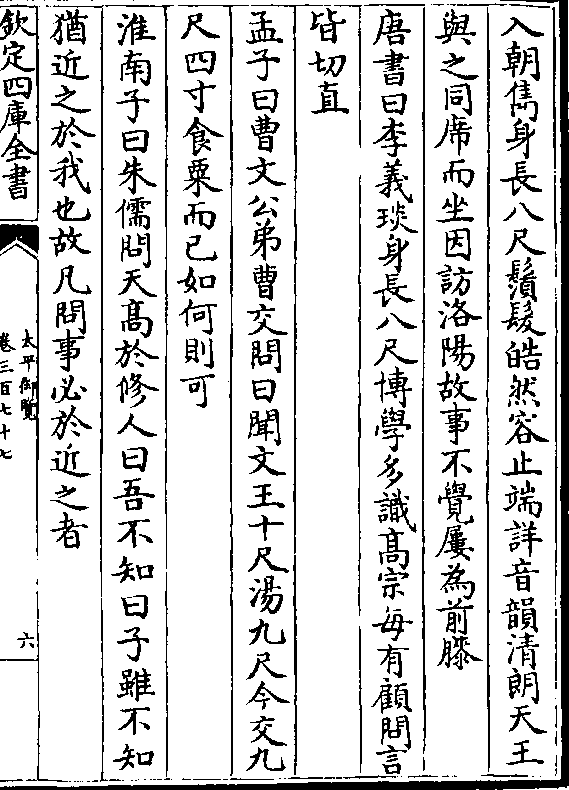 入朝儁身長八尺鬚髮皓然容止端詳音韻清朗天王
與之同席而坐因訪洛陽故事不覺屢為前膝
唐書曰李義琰身長八尺博學多識髙宗每有顧問言
皆切直
孟子曰曹文公弟曹交問曰聞文王十尺湯九尺今交九
尺四寸食粟而已如何則可
淮南子曰朱儒問天髙於修人曰吾不知曰子雖不知
猶近之於我也故凡問事必於近之者
欽定四庫全書
太平御覽
卷三百七十七
六